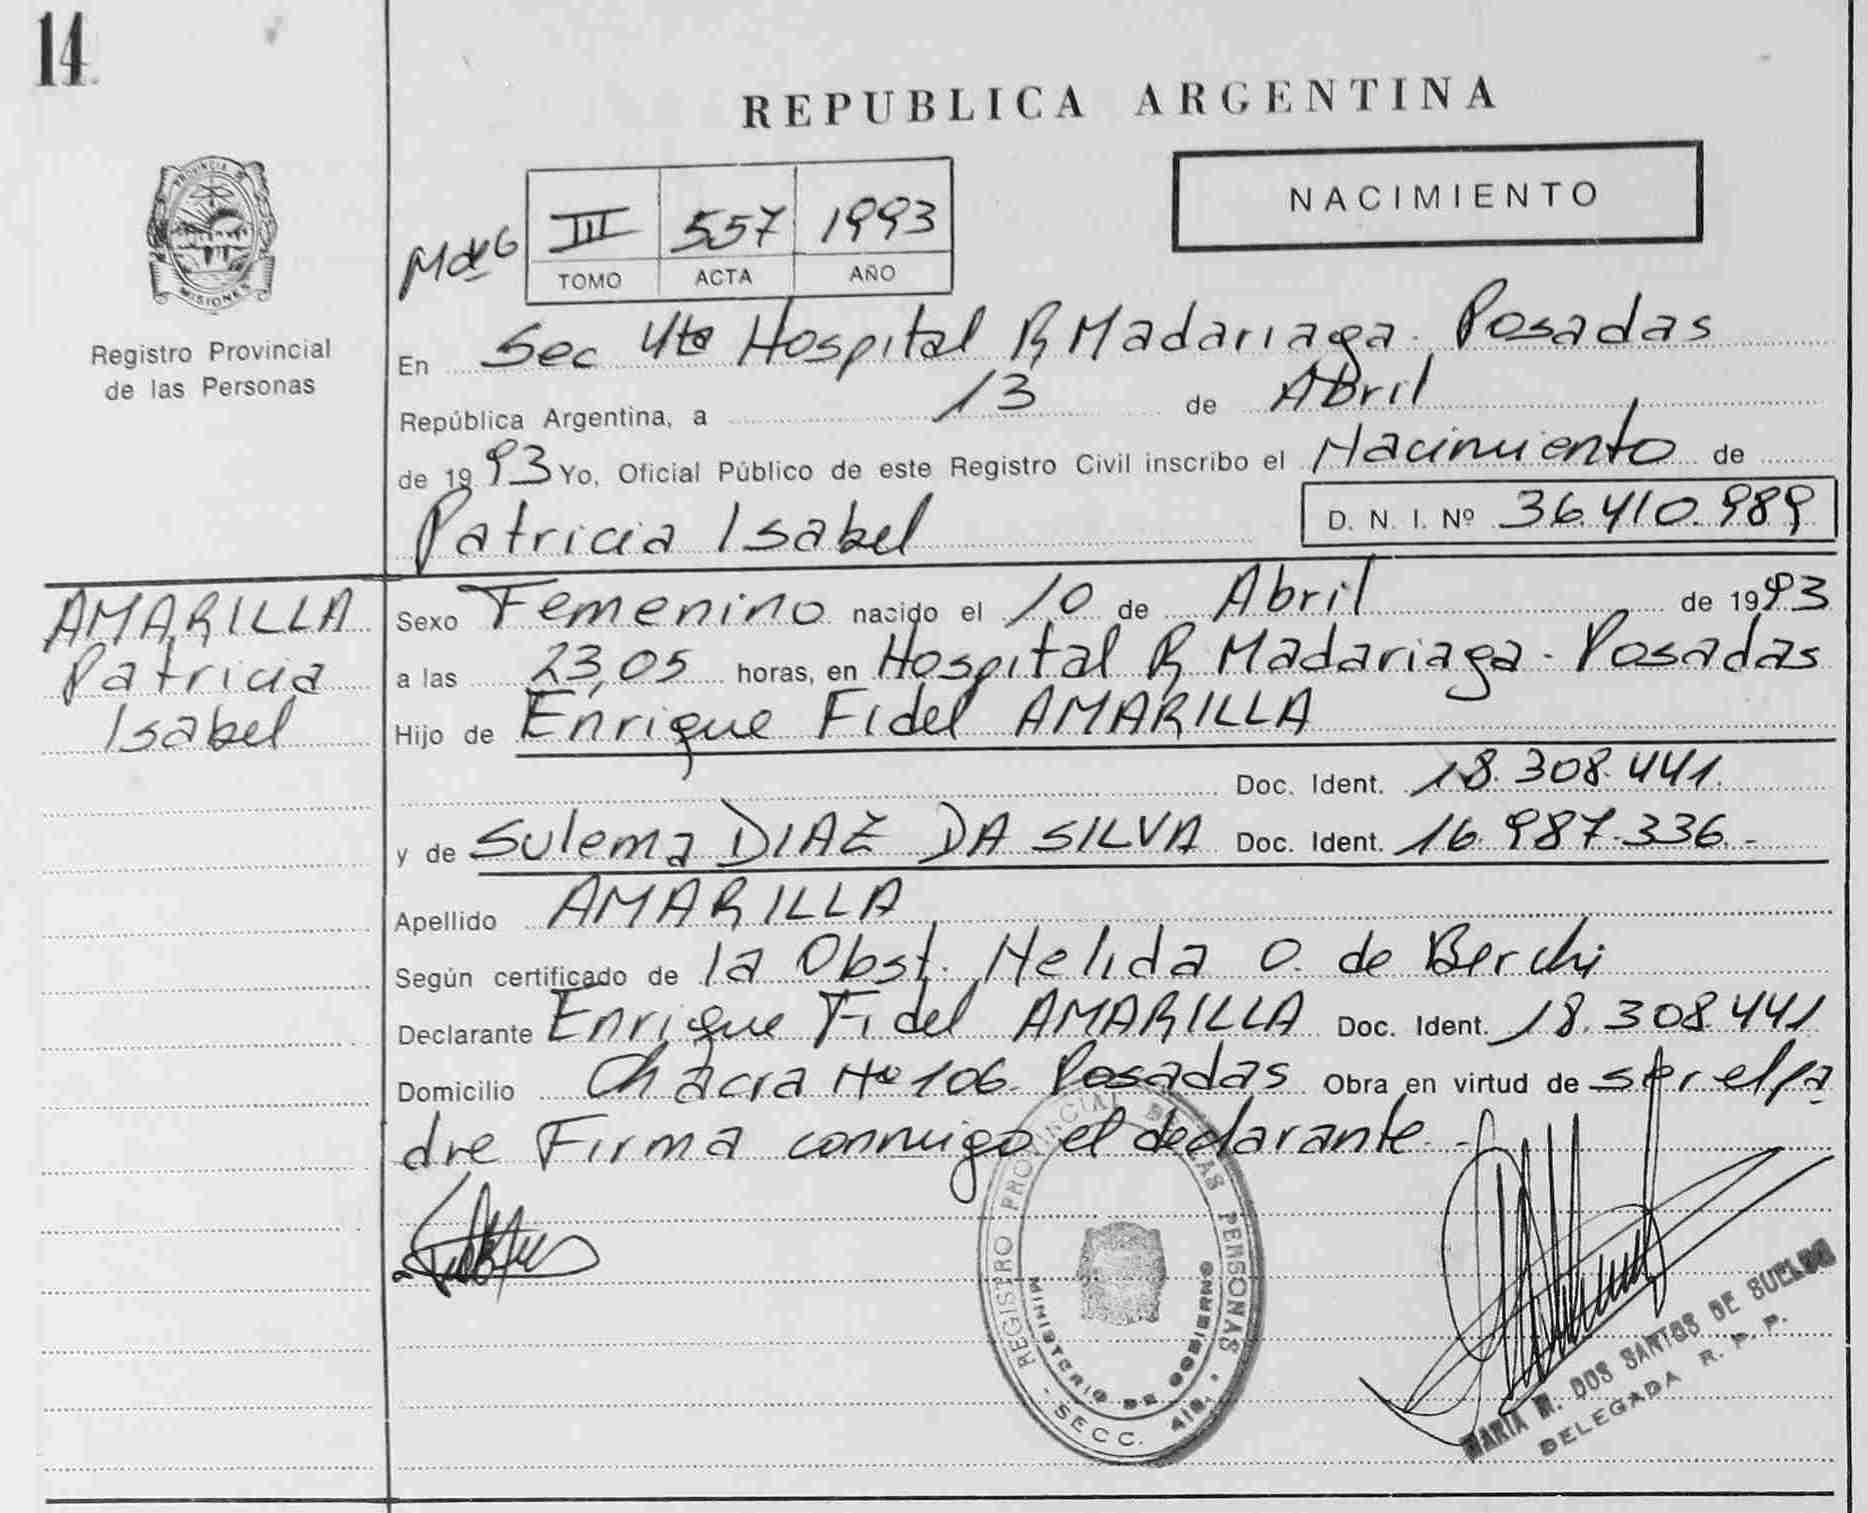 14
REPUBLICA ARGENTINA
PROVINCIA DE
MISIONES
Registro Provincial
de las Personas
NACIMIENTO
III 557 1993
TOMO ACTA AÑO
En Sec 4ta Hospital R Madariaga. Posadas
República Argentina, a 13 de Abril
de 1993 Yo, Oficial Público de este Registro Civil inscribo el Nacimiento de
Patricia Isabel D. N. I. Nº 36.410.989
AMARILLA
Patricia
Isabel
Sexo Femenino nacido el 10 de Abril de 1993
a las 23,05 horas, en Hospital R Madariaga - Posadas
Hijo de Enrique Fidel AMARILLA
Doc. Ident. 18.308.441.
y de Sulema DIAZ DA SILVA Doc. Ident. 16.987.336.-
Apellido AMARILLA
Según certificado de la Obst. Nelida O. de Berchi
Declarante Enrique Fidel AMARILLA Doc. Ident. 18.308.441
Domicilio Chacra Nº 106. Posadas Obra en virtud de ser el pa
dre Firma conmigo el declarante.-
REGISTRO PROVINCIAL DE LAS PERSONAS
MINISTERIO DE GOBIERNO
SECC. 4ta.
MARIA M. DOS SANTOS DE SUELDO
DELEGADA R. P. P.